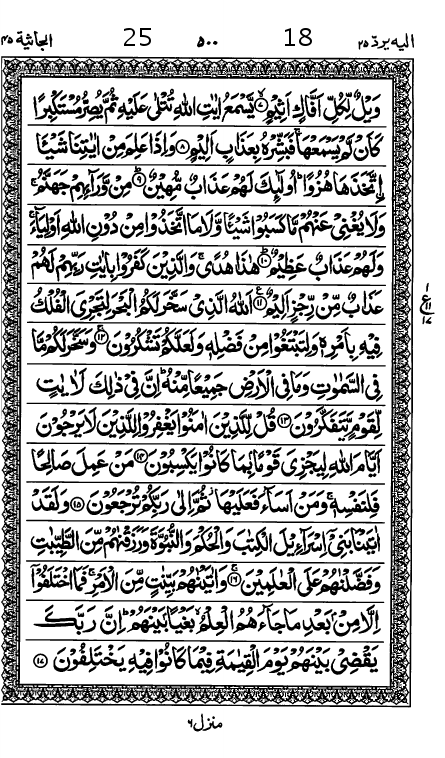 الیه یردّ ۲۵ 18 ۵۰۰ 25 الجاثیة ۴۵
وَيْلٌ لِّكُلِّ اَفَّاكٍ اَثِيْمٍ ۙ﴿۷﴾ يَّسْمَعُ اٰيٰتِ اللّٰهِ تُتْلٰى عَلَيْهِ ثُمَّ يُصِرُّ مُسْتَكْبِرًا
كَاَنْ لَّمْ يَسْمَعْهَا ۚ فَبَشِّرْهُ بِعَذَابٍ اَلِيْمٍ ﴿۸﴾ وَاِذَا عَلِمَ مِنْ اٰيٰتِنَا شَيْـًٔا
اۨتَّخَذَهَا هُزُوًا ؕ اُولٰٓئِكَ لَهُمْ عَذَابٌ مُّهِيْنٌ ؕ﴿۹﴾ مِنْ وَّرَآئِهِمْ جَهَنَّمُ ۚ
وَلَا يُغْنِيْ عَنْهُمْ مَّا كَسَبُوْا شَيْـًٔا وَّلَا مَا اتَّخَذُوْا مِنْ دُوْنِ اللّٰهِ اَوْلِيَآءَ ۚ
وَلَهُمْ عَذَابٌ عَظِيْمٌ ؕ﴿۱۰﴾ هٰذَا هُدًى ۚ وَالَّذِيْنَ كَفَرُوْا بِاٰيٰتِ رَبِّهِمْ لَهُمْ
عَذَابٌ مِّنْ رِّجْزٍ اَلِيْمٌ ﴿۱۱﴾ اَللّٰهُ الَّذِيْ سَخَّرَ لَكُمُ الْبَحْرَ لِتَجْرِيَ الْفُلْكُ
ع ۱ ۱۱ ۱۷
فِيْهِ بِاَمْرِهٖ وَلِتَبْتَغُوْا مِنْ فَضْلِهٖ وَلَعَلَّكُمْ تَشْكُرُوْنَ ۚ﴿۱۲﴾ وَسَخَّرَ لَكُمْ مَّا
فِي السَّمٰوٰتِ وَمَا فِي الْاَرْضِ جَمِيْعًا مِّنْهُ ؕ اِنَّ فِيْ ذٰلِكَ لَاٰيٰتٍ
لِّقَوْمٍ يَّتَفَكَّرُوْنَ ﴿۱۳﴾ قُلْ لِّلَّذِيْنَ اٰمَنُوْا يَغْفِرُوْا لِلَّذِيْنَ لَا يَرْجُوْنَ
اَيَّامَ اللّٰهِ لِيَجْزِيَ قَوْمًۢا بِمَا كَانُوْا يَكْسِبُوْنَ ﴿۱۴﴾ مَنْ عَمِلَ صَالِحًا
فَلِنَفْسِهٖ ۚ وَمَنْ اَسَآءَ فَعَلَيْهَا ؗ ثُمَّ اِلٰى رَبِّكُمْ تُرْجَعُوْنَ ﴿۱۵﴾ وَلَقَدْ
اٰتَيْنَا بَنِيْٓ اِسْرَآءِيْلَ الْكِتٰبَ وَالْحُكْمَ وَالنُّبُوَّةَ وَرَزَقْنٰهُمْ مِّنَ الطَّيِّبٰتِ
وَفَضَّلْنٰهُمْ عَلَى الْعٰلَمِيْنَ ۚ﴿۱۶﴾ وَاٰتَيْنٰهُمْ بَيِّنٰتٍ مِّنَ الْاَمْرِ ۚ فَمَا اخْتَلَفُوْٓا
اِلَّا مِنْۢ بَعْدِ مَا جَآءَهُمُ الْعِلْمُ ۙ بَغْيًۢا بَيْنَهُمْ ؕ اِنَّ رَبَّكَ
يَقْضِيْ بَيْنَهُمْ يَوْمَ الْقِيٰمَةِ فِيْمَا كَانُوْا فِيْهِ يَخْتَلِفُوْنَ ﴿۱۷﴾
منزل ۶